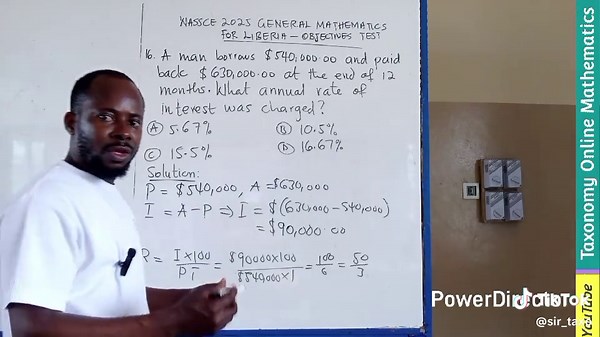 WASSCE 2025 GENERAL MATHEMATICS
FOR LIBERIA - OBJECTIVES TEST
16. A man borrows $540,000.00 and paid
back $630,000.00 at the end of 12
months. What annual rate of
interest was charged?
Ⓐ 5.67% Ⓑ 10.5%
Ⓒ 15.5% Ⓓ 16.67%
Solution:
P = $540,000, A = $630,000
I = A - P ⇒ I = $(630,000 - 540,000)
= $90,000.00
R = I x 100 / P T = $90000 x 100 / $540,000 x 1 = 100/6 = 50/3
PowerDirector
TikTok
@sir_ta
Taxonomy Online Mathematics
YouTube